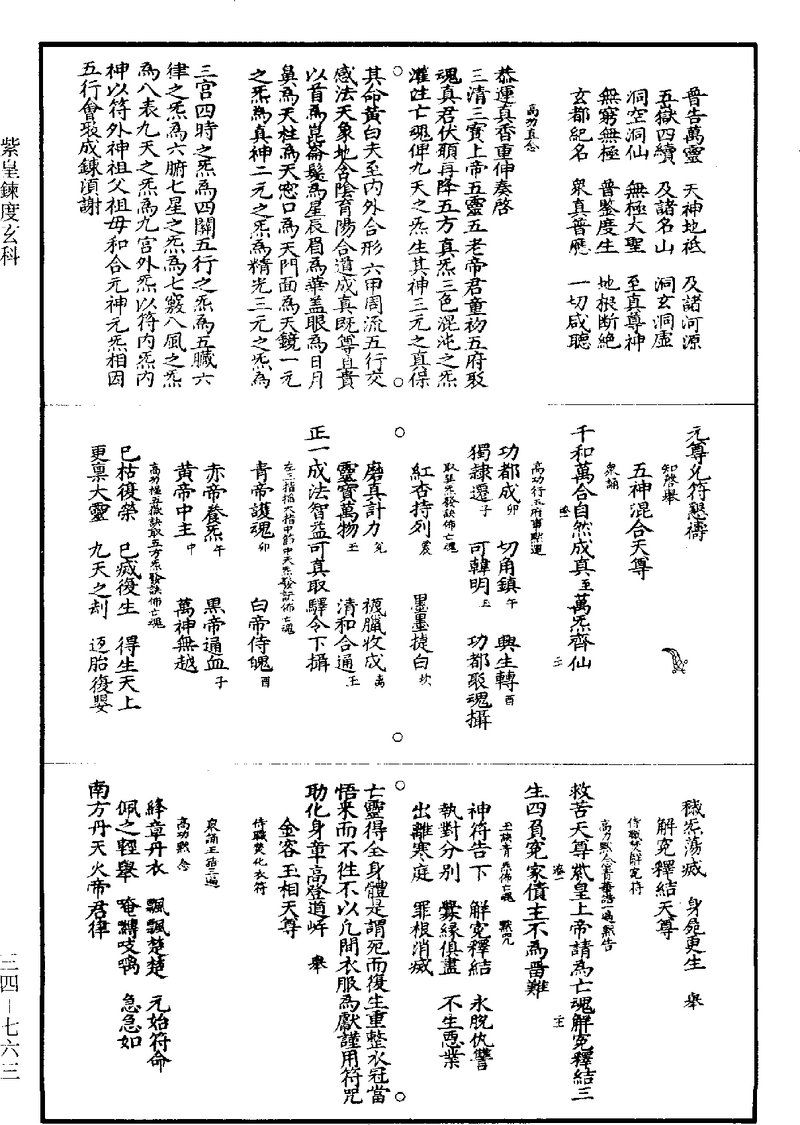 普告萬靈 天神地祇 及諸河源
五嶽四續 及諸名山 洞玄洞虛
洞空洞仙 無極大聖 至真尊神
無窮無極 普鑒度生 地根斷絶
玄都紀名 衆真普應 一切咸聽
高功真念
恭運真香重伸奏啓
三清三寳上帝五靈五老帝君童初五府馭
魂真君伏願再降五方真炁三色混沌之炁
灌注亡魂俾九天之炁生其神三元之真保
其命黄白夫至内外合形六甲周流五行交
感法天象地含陰育陽合道成真既尊且貴
以首為崑崙髮為星辰眉為華盖眼為日月
鼻為天柱為天窓口為天門面為天鏡一元
之炁為真神二元之炁為精光三元之炁為
三宫四時之炁為四關五行之炁為五臓六
律之炁為六腑七星之炁為七竅八風之炁
為八表九天之炁為九宫外炁以符内炁内
神以符外神祖父祖母和合元神元炁相因
五行會聚成鍊須謝
元尊兊符懇禱
知磬舉
五神混合天尊
衆誦
千和萬合自然成真至萬炁齊仙
高功行五府事默運
功都成卯 切角鎮午 興生轉酉
獨隷遷子 可韓明 功都馭魂攝
紅杏持列震 墨墨捷白坎
磨真計力兊 視臘牧成离
靈寳萬物 清和合通
正一成法智益可真取 驛令下攝
青帝護魂卯 白帝侍魄酉
赤帝養炁午 黑帝通血子
黄帝中主中 萬神無越
高功掐五嶽訣取五方炁發訣佈亡魂
已枯復榮 已滅復生 得生天上
更稟大靈 九天之刦 迈胎復嬰
穢炁蕩滅 身飛更生 舉
解寃釋結天尊
侍職焚解寃符
救苦天尊紫皇上帝請為亡魂解寃釋結三
生四負寃家債主不為畱難
神符告下 解寃釋結 永脱仇讐
執對分别 釁縁俱盡 不生惡業
出離寒庭 罪根消滅
亡靈得全身體是謂死而復生重整衣冠當
悟来而不徃不以凢間衣服為獻謹用符咒
助化身章高登道岸 舉
金容玉相天尊
侍職焚化衣符
高功默念
絳章丹衣 飄飄楚楚 元始符命
佩之輕舉 急急如
南方丹天火帝君律
紫皇鍊度玄科
三四－七六三